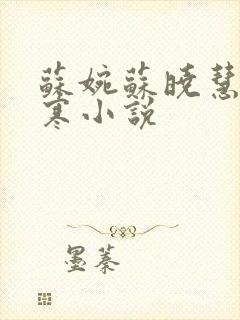 蘇婉蘇曉慧
寒小說
墨蓁